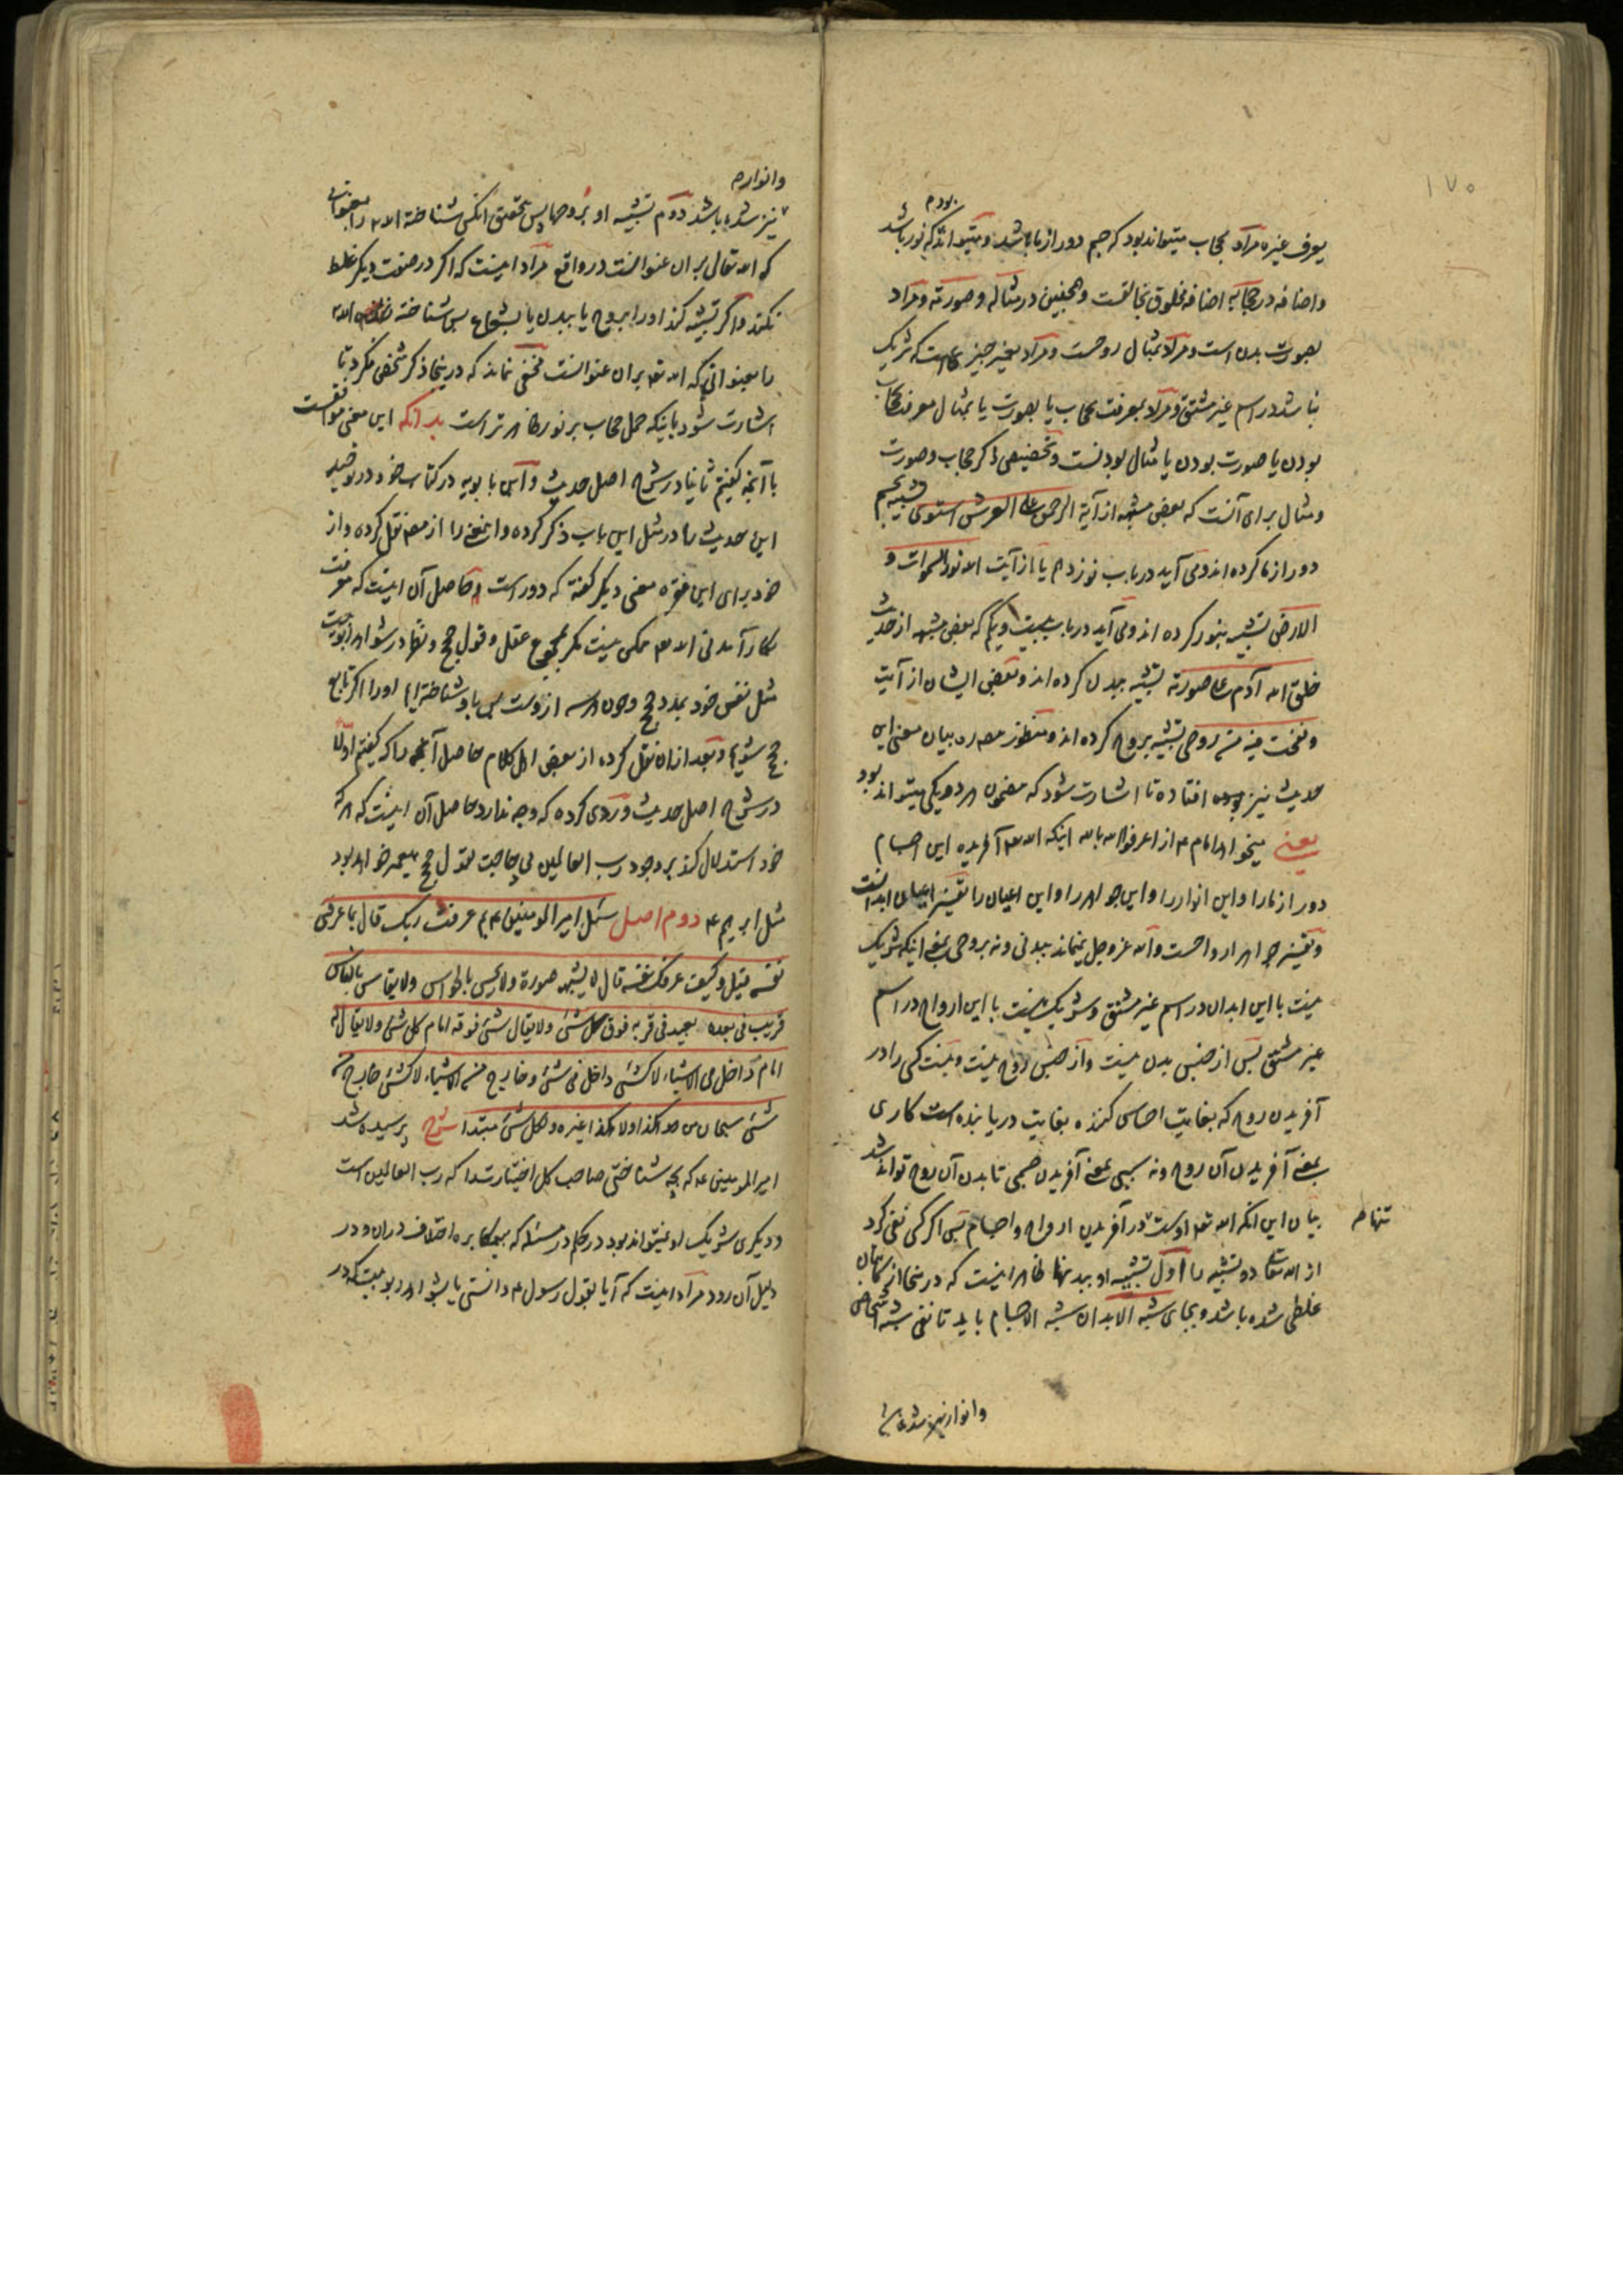 ۱۷۰
بودم
یعرف غیره مراد بحجاب میتواند بود که جسم دور از ما باشد و میتواند که نور باشد
و اضافه در حجابه اضافه مخلوق بخالقست و همچنین در مثاله و صورته و مراد
بصورت بدن است و مراد بمثال روحست و مراد بغیر چیزی است که شریک
نباشد در اسم غیر مشتق و مراد بمعرفت بحجاب یا بصورت یا بمثال معرفت بحجاب
بودن یا صورت بودن یا مثال بودنست و تخصیص ذکر حجاب و صورت
و مثال برای آنست که بعض مشبهه از آیة الرحمن علی العرش استوی تشبیه بجسم
دور از ما کرده اند و می آید در باب نوزدهم یا از آیت الله نور السموات و
الارض تشبیه بنور کرده اند و می آید در باب بیست و یکم که بعض مشبهه از حدیث
خلق الله آدم علی صورته تشبیه ببدن کرده اند و بعض ایشان از آیت
و نفخت فیه من روحی تشبیه بروح کرده اند و منظور مصد ره بیان معنی این
حدیث نیز افتاده تا اشارت شود که مضمون هر دو یکی میتواند بود
یعنی میخواهد امام ع از اعرفوا الله بالله اینکه الله تع آفریده این اجسام
دور از ما را و این انوار را و این جواهر را و این اعیان را تفسیر اعیان ابدانست
و تفسیر جواهر ارواحست و الله عز و جل نمیماند ببدنی و نه بروحی بمعنی اینکه شریک
نیست با این ابدان در اسم غیر مشتق و شریک نیست با این ارواح در اسم
غیر مشتق پس از جنس بدن نیست و از جنس روح نیست و نیست کسی را در
آفریدن روح که بغایت احساس کننده بغایت دریابنده است کاری
بمعنی آفریدن آن روح و نه سببی بمعنی آفریدن جسمی تا بدن آن روح تواند شد
بیان این آنکه الله تع اوست در آفریدن ارواح و اجسام پس اگر کسی نفی کرد
تنها ط
از الله تعالی دو تشبیه را اول تشبیه او ببدنها ظاهر اینست که در اینجا از کاتبان
غلطی شده باشد و بجای شبه الابدان شبه الاجسام باید تا نفی شبه اشخاص
و انوار نیز شده
و انوارم
نیز شده باشد دوم تشبیه او بروحها پس بتحقیق آنکس شناخته الله را بعنوانی
که الله تعالی بر آن عنوانست در واقع مراد اینست که اگر در صفت دیگر غلط
نکند و اگر تشبیه کند او را بروح یا ببدن یا بشعاع پس شناخته الله
را بعنوانی که الله تع بر آن عنوانست مخفی نماند که در اینجا ذکر شخص نکرد تا
اشارت شود باینکه حمل حجاب بر نور ظاهر تر است بدانکه این معنی موافقست
با آنچه گفتیم ثانیا در شرح اصل حدیث و ابن بابویه در کتاب خود در توحید
این حدیث را در مثل این باب ذکر کرده و این معنی را از مصه نقل کرده و از
خود برای این فقره معنی دیگر گفته که دور است و حاصل آن اینست که معرفت
بکار آمدنی الله تع ممکن نیست مگر بمجموع عقل و قول حجج و تنها در شواهد ربوبیت
مثل نفس خود بمدد حجج و چون هر سه از وست پس باو شناخته ایم او را اگر تابع
حجج شویم و بعد از ان نقل کرده از بعض اهل کلام حاصل آنچه را که گفتیم اولا
در شرح اصل حدیث و ردی کرده که وجه ندارد حاصل آن اینست که هر که
خود استدلال کند بر وجود رب العالمین بی حاجت بقول حجج پیغمبر خواهد بود
مثل ابرهیم ع دوم اصل سئل امیر المومنین ع بم عرفت ربک قال بما عرفنی
نفسه قیل و کیف عرفک نفسه قال لا یشبهه صورة و لا یحس بالحواس و لا یقاس بالناس
قریب فی بعده بعید فی قربه فوق کل شئ و لا یقال شئ فوقه امام کل شئ و لا یقال له
امام داخل فی الاشیاء لا کشئ داخل فی شئ و خارج من الاشیاء لا کشئ خارج من
شئ سبحان من هو هکذا و لا هکذا غیره و لکل شئ مبتدا شرح پرسیده شد
امیر المومنین ع که بچه شناختی صاحب کل اختیارت را که رب العالمین است
و دیگری شریک او نمیتواند بود در حکم در مسئله که بیمکابره اختلاف در ان و در
دلیل آن رود مراد اینست که آیا بقول رسول ع دانستی یا بشواهد ربوبیت که در